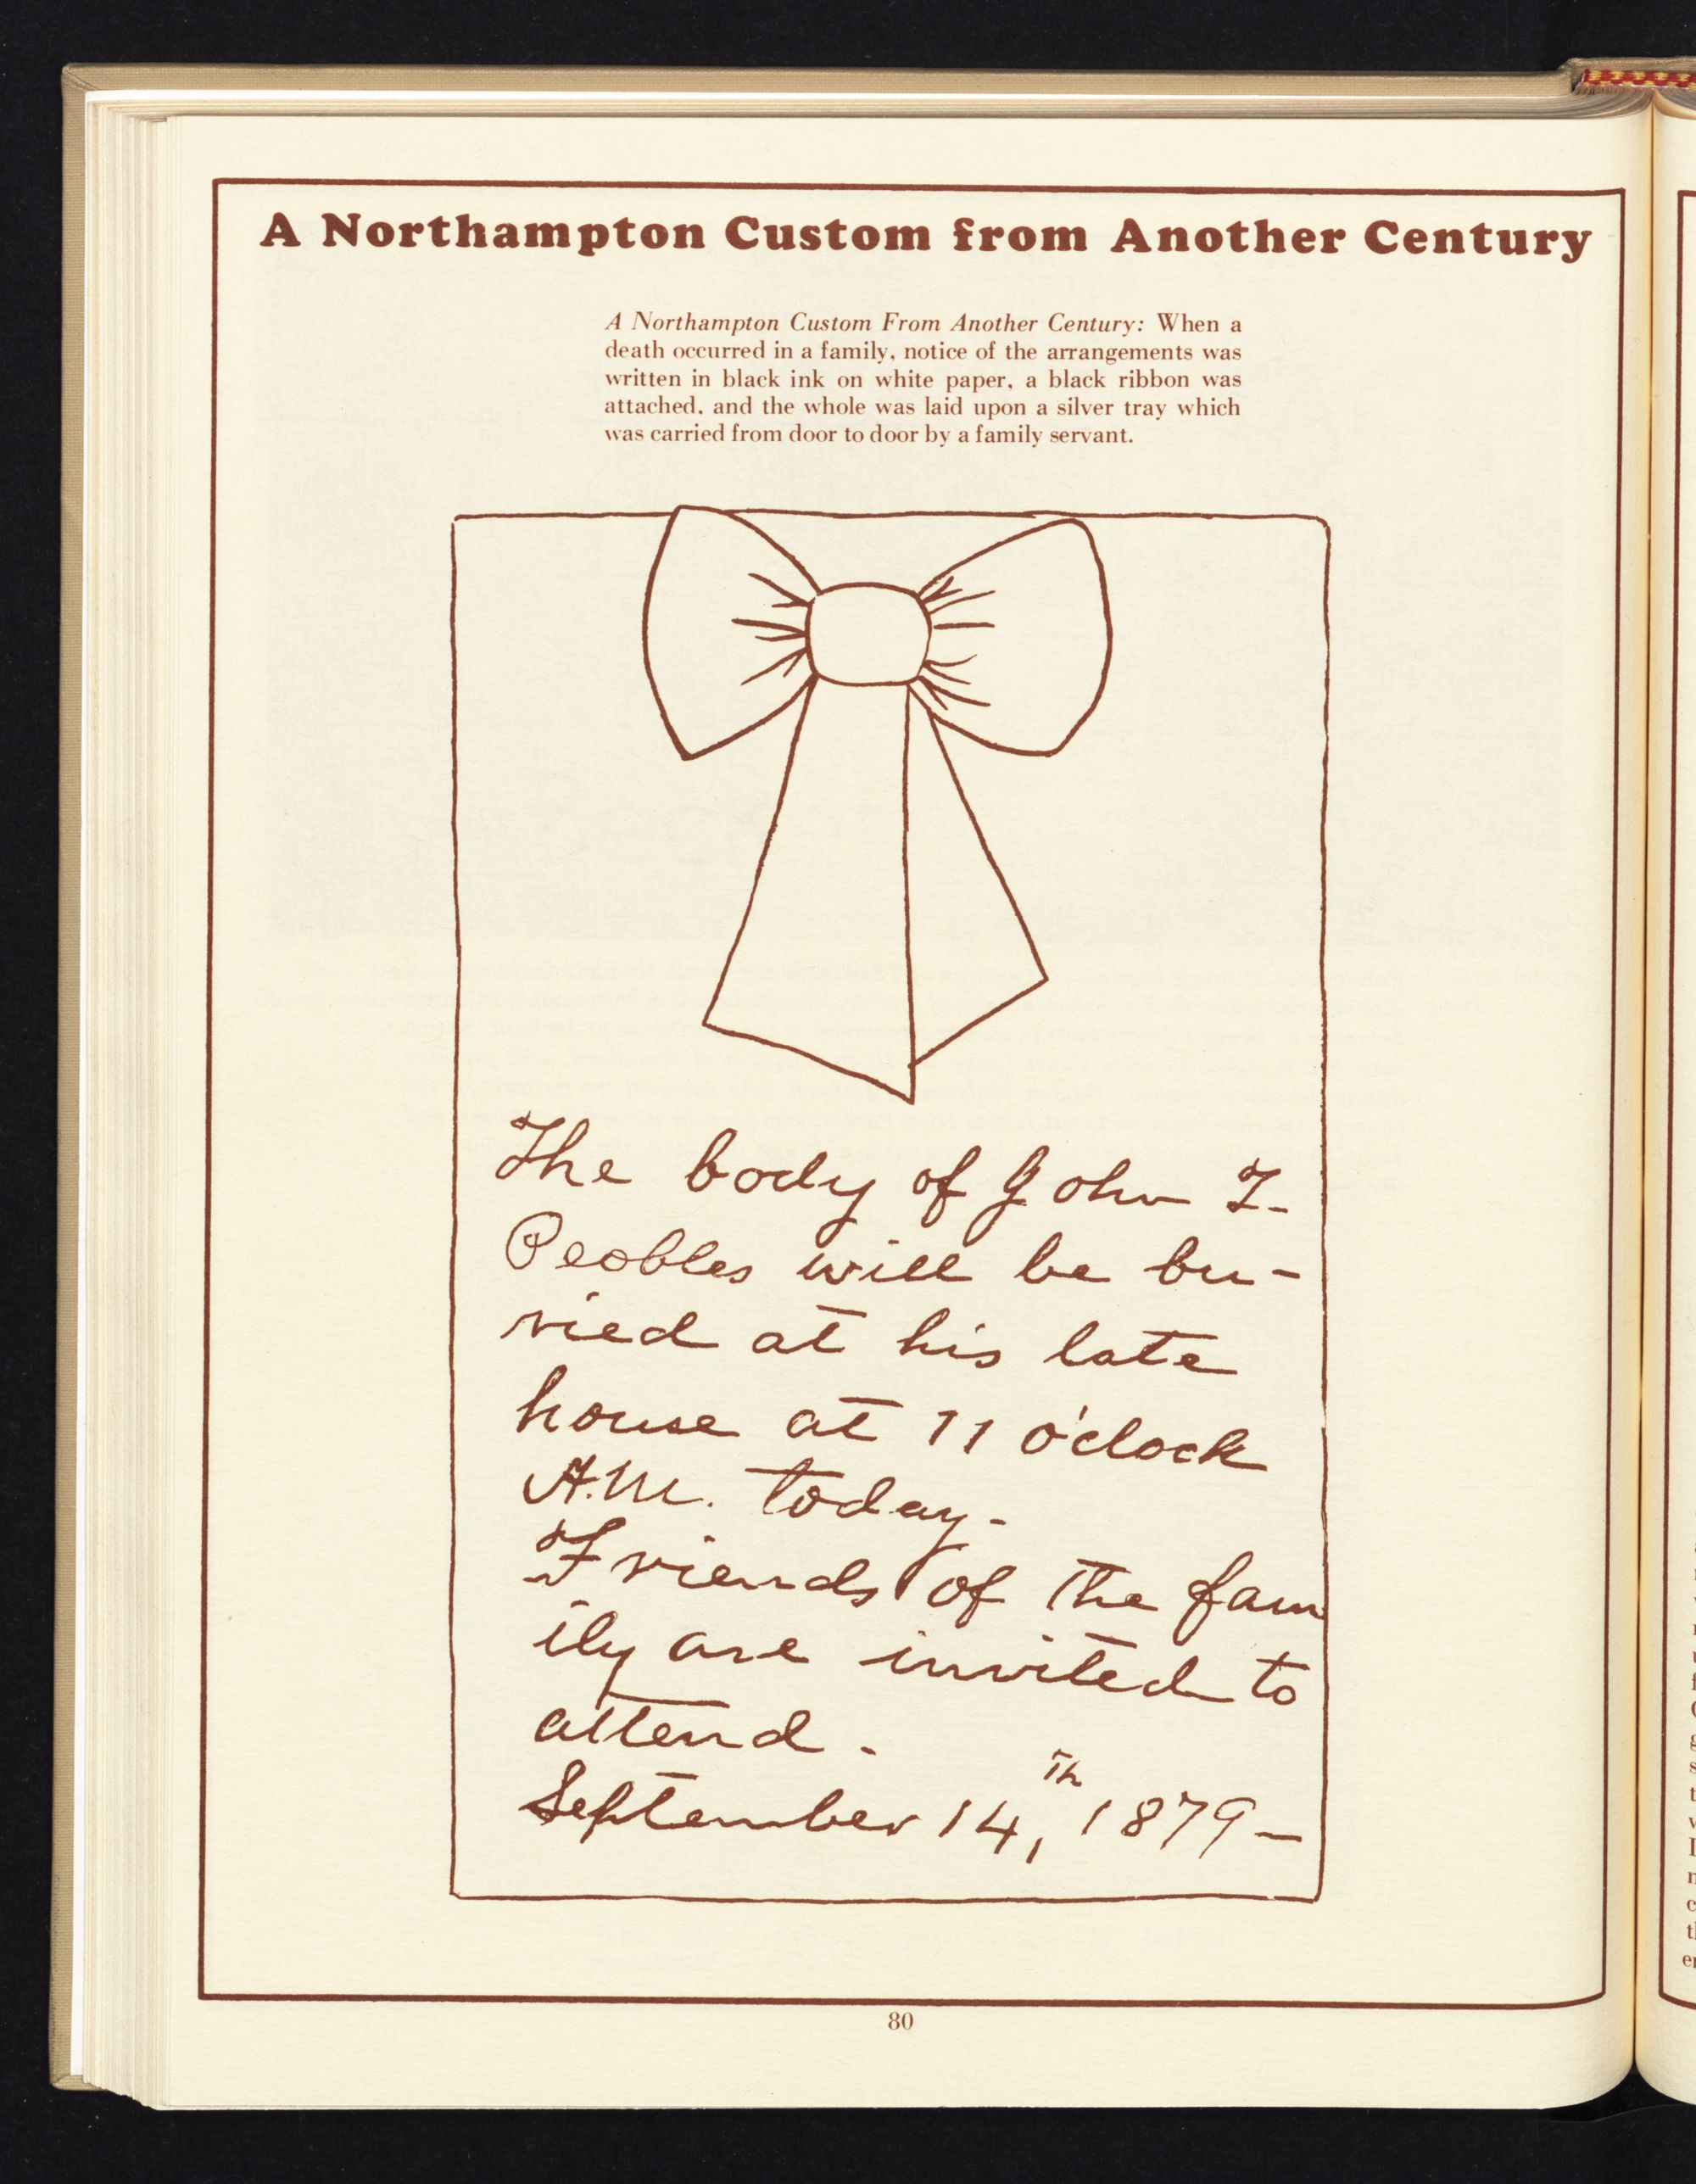 A Northampton Custom from Another Century
A Northampton Custom From Another Century: When a
death occurred in a family, notice of the arrangements was
written in black ink on white paper, a black ribbon was
attached, and the whole was laid upon a silver tray which
was carried from door to door by a family servant.
The body of John T.
Peobles will be bu-
ried at his late
house at 11 o'clock
A.M. today.
Friends of the fam
ily are invited to
attend.
September 14,th 1879—
80